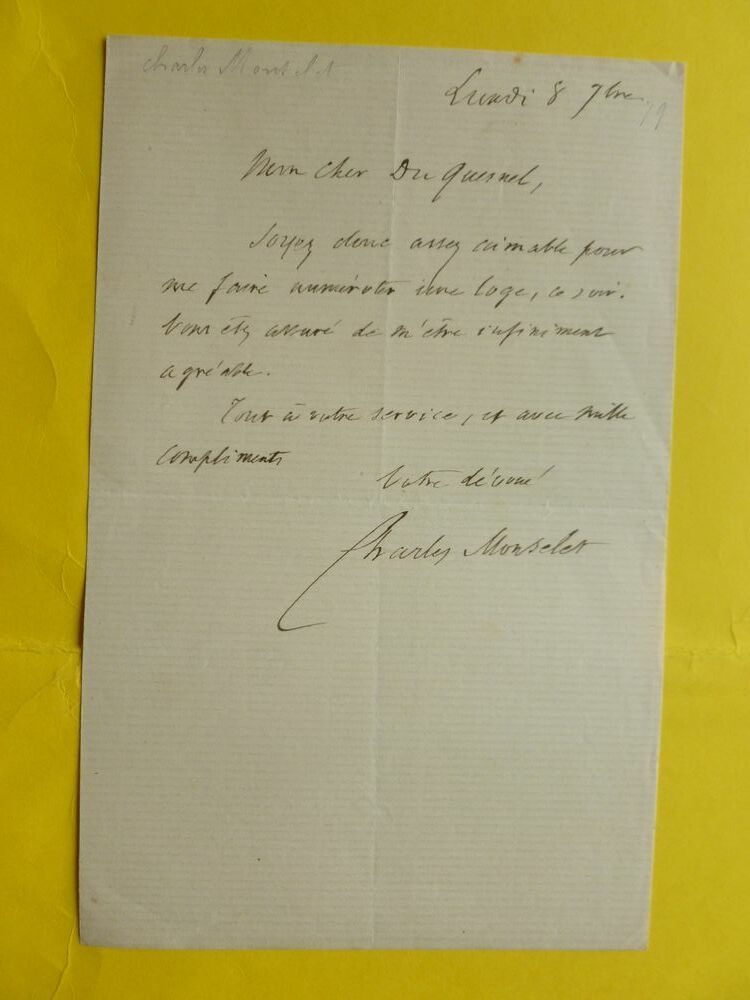 Charles Monselet
Lundi 8 7bre 79
Mon cher Du Quesnel,
Soyez donc assez aimable pour
me faire numéroter une loge, ce soir.
Vous êtes assuré de m'être infiniment
agréable.
Tout à votre service, et avec mille
compliments
Votre dévoué
Charles Monselet